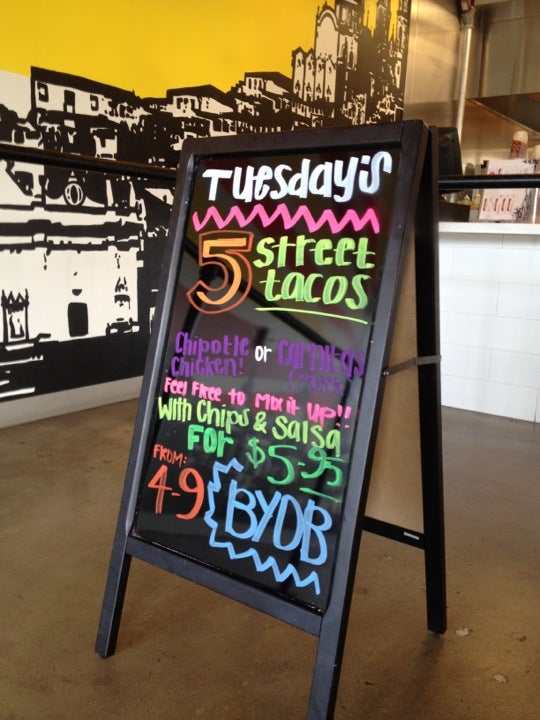 Tuesday's
5 street
tacos
Chipotle or Carnitas
Chicken!
Feel Free to Mix it Up!!
With Chips & Salsa
For $5.95
FROM:
4-9
BYOB